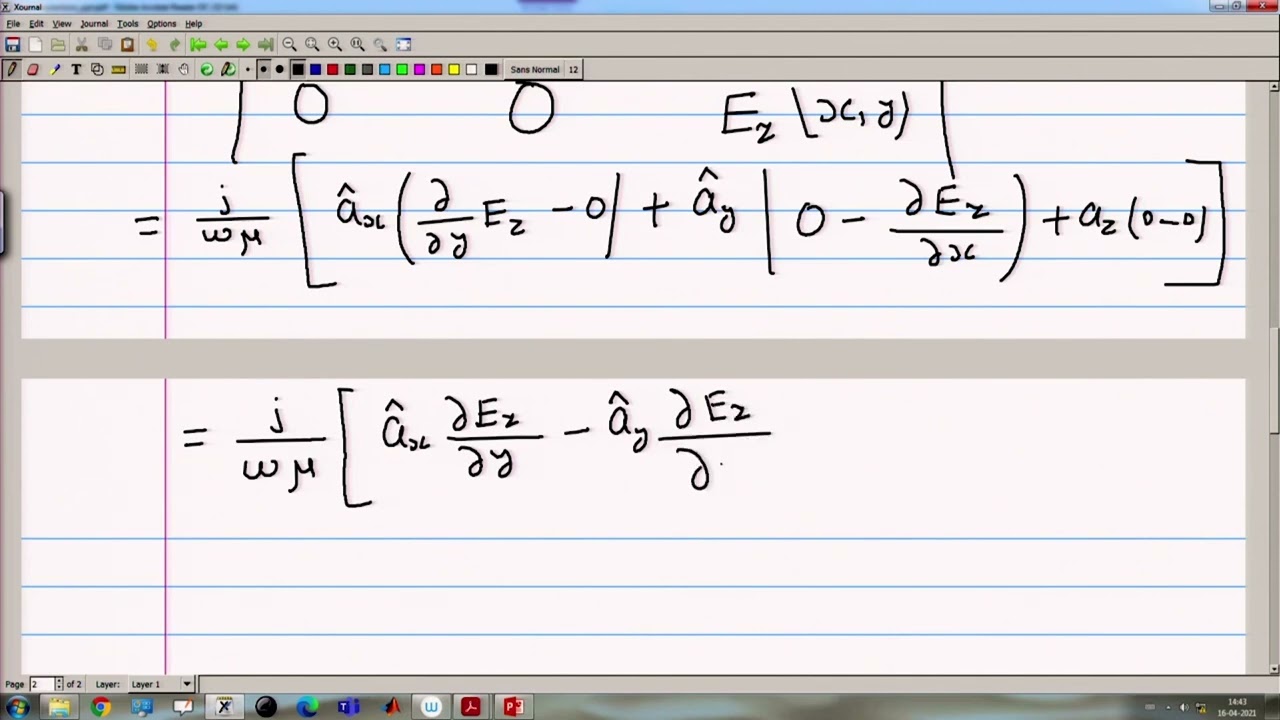 Xournal
File Edit View Journal Tools Options Help
Sans Normal 12
0 0 E_z (x, y)
= j/ωμ [ â_x (∂/∂y E_z − 0) + â_y (0 − ∂E_z/∂x) + a_z (0−0) ]
= j/ωμ [ â_x ∂E_z/∂y − â_y ∂E_z/∂
Page 2 of 2 Layer: Layer 1
14:43
16-04-2021